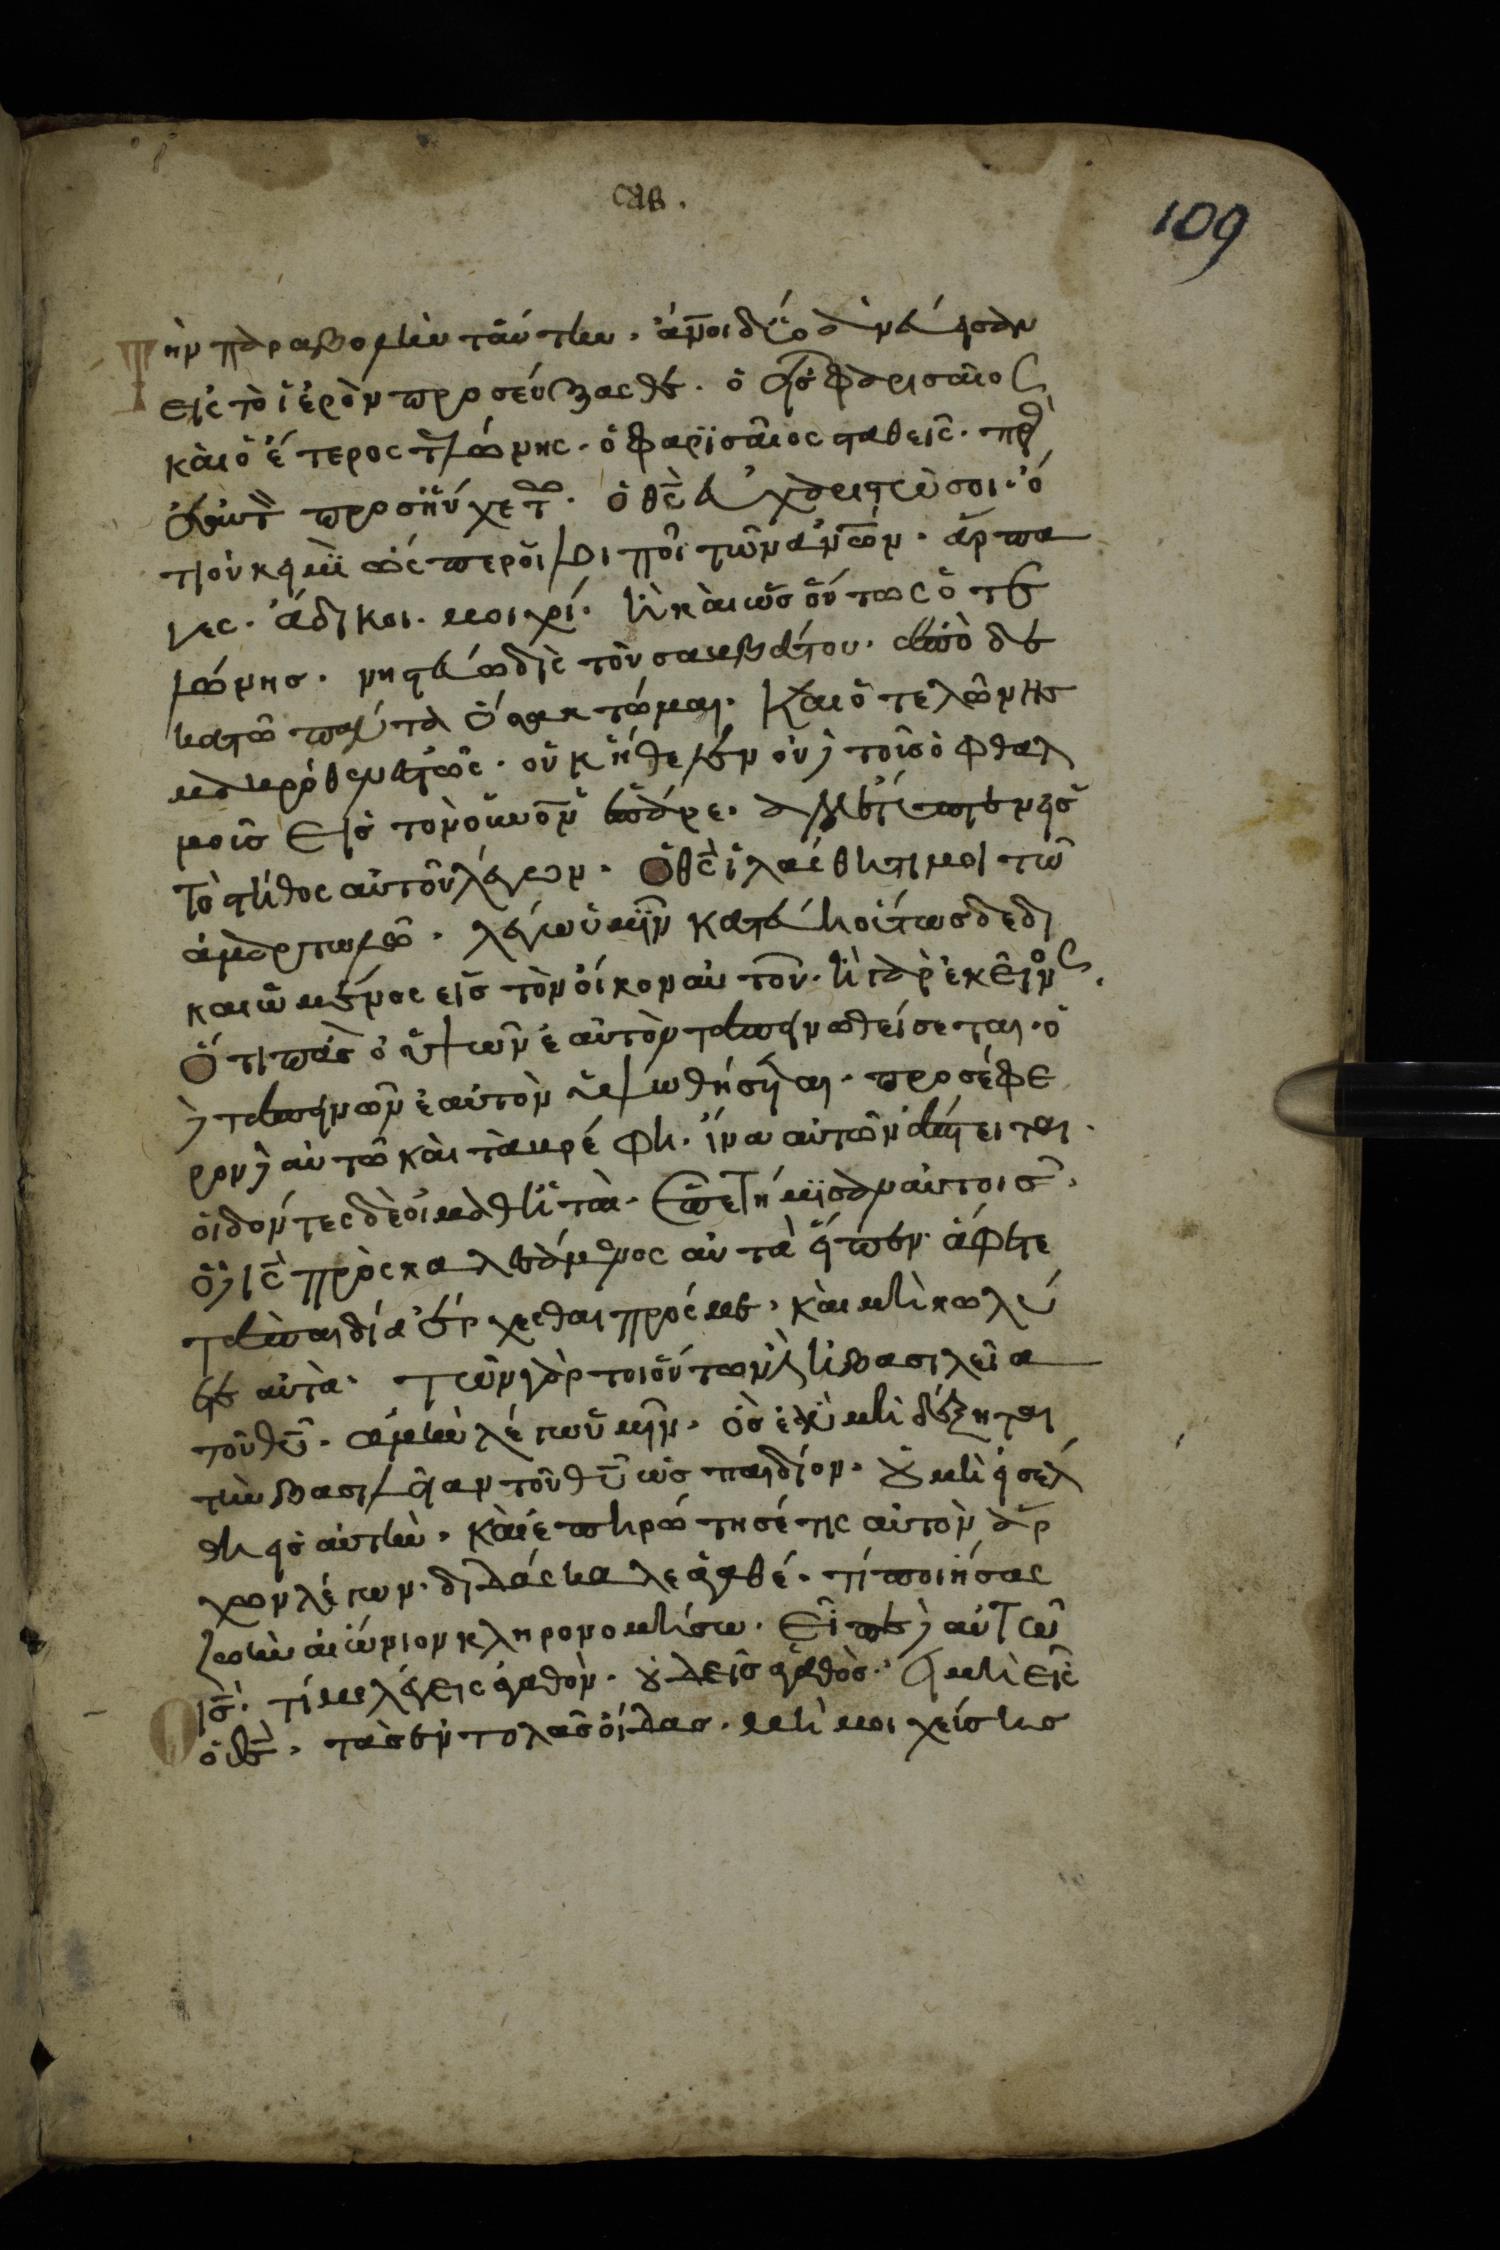 σαβ.
109
Τὴν παραβολὴν ταύτην. ἄνοι δύο ἀνέβησαν
εἰς τὸ ἱερὸν προσεύξασθαι. ὁ εἷς φαρισαῖος
καὶ ὁ ἕτερος τελώνης. ὁ φαρϊσαῖος σταθεὶς. πρὸς
ἑαυτὸν προσηύχετο. ὁ θς εὐχαριστῶ σοι. ὅ
τι οὐκ εἰμὶ ὡς περ οἱ λοιποὶ τῶν ἀνῶν. ἅρπα
γες. ἄδικοι. μοιχοί. ἢ καὶ ὡς οὗτος ὁ τε
λώνης. νηστεύω δὶς τοῦ σαββάτου. ἀποδε
κατῶ πάντα ὅσα κτῶμαι. Καὶ ὁ τελώνης
μακρόθεν ἑστὼς. οὐκ ἤθελεν οὐδὲ τοῖς ὀφθαλ
μοῖς εἰς τὸν οὐνὸν ἐπάραι. ἀλλ' ἔτυπτεν εἰς
τὸ στῆθος αὐτοῦ λέγων. Ὁ θς ἱλάσθητί μοι τῷ
ἁμαρτωλῷ. λέγω ὑμῖν κατέβη οὗτος δεδι
καιωμένος εἰς τὸν οἶκον αὐτοῦ. ἢ γὰρ ἐκεῖνος.
Ὅτι πᾶς ὁ ὑψῶν ἑαυτὸν ταπεινωθείσεται. ὁ
δὲ ταπεινῶν ἑαυτὸν ὑψωθήσεται. προσέφε
ρον δὲ αὐτῶ καὶ τὰ βρέφη. ἵνα αὐτῶν ἅπτειται.
οἰδόντες δὲ οἱ μαθηταὶ. ἐπετήμϊσαν αὐτοῖς.
ὁ δὲ ις προσκαλεσάμενος αὐτὰ εἶπεν. ἄφετε
τὰ παιδία ἔρχεσθαι πρός με. καὶ μὴ κωλύ
ετε αὐτὰ. τῶν γὰρ τοιούτων ἐστὶν ἡ βασιλεία
τοῦ θυ. ἀμὴν λέγω ὑμῖν. ὃς ἐὰν μὴ δέξηται
τὴν βασιλείαν τοῦ θυ ὡς παιδίον. οὐ μὴ εἰσέλ
θη εἰς αὐτὴν. καὶ ἐπηρώτησέ τις αὐτὸν ἄρ
χων λέγων. διδάσκαλε ἀγαθέ. τί ποιήσας
ζωὴν αἰώνιον κληρονομήσω. Εἶπε δὲ αὐτῶ
ὁ ις. τί με λέγεις ἀγαθὸν. οὐδεὶς ἀγαθὸς. εἰ μὴ εἷς
ὁ θς. τὰς ἐντολὰς οἶδας. μὴ μοιχείσης